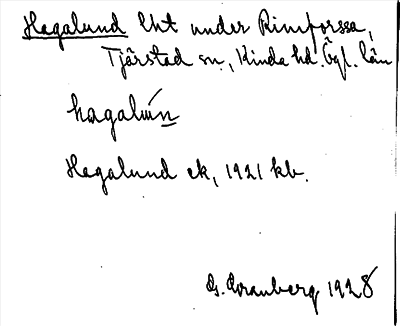 Hagalund lht under Rimforssa,
Tjärstad sn, Kinda hd. Ögl. län
hagalún
Hagalund ek, 1921 kb.
G. Granberg 1928